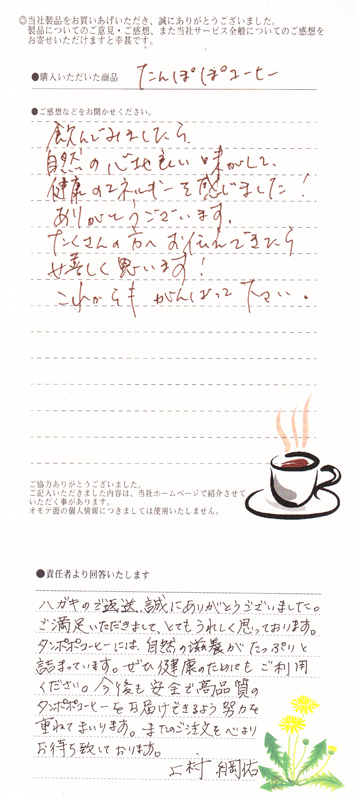 ◎当社製品をお買いあげいただき、誠にありがとうございました。
製品についてのご意見・ご感想、また当社サービス全般についてのご感想を
お寄せいただけますと幸甚です。
●購入いただいた商品
たんぽぽコーヒー
●ご感想などをお聞かせください。
飲んでみましたら、
自然の心地良い味がして、
健康のエネルギーを感じました!
ありがとうございます。
たくさんの方へお伝えできたら
嬉しく思います!
これからもがんばって下さい。
ご協力ありがとうございました。
ご記入いただきました内容は、当社ホームページで紹介させて
いただく事があります。
オモテ面の個人情報につきましては使用いたしません。
●責任者より回答いたします
ハガキのご返送、誠にありがとうございました。
ご満足いただきまして、とてもうれしく思っております。
タンポポコーヒーには、自然の滋養がたっぷりと
詰まっています。ぜひ健康のためにもご利用
ください。今後も安全で高品質の
タンポポコーヒーをお届けできるよう努力を
重ねてまいります。またのご注文を心より
お待ち致しております。
上村